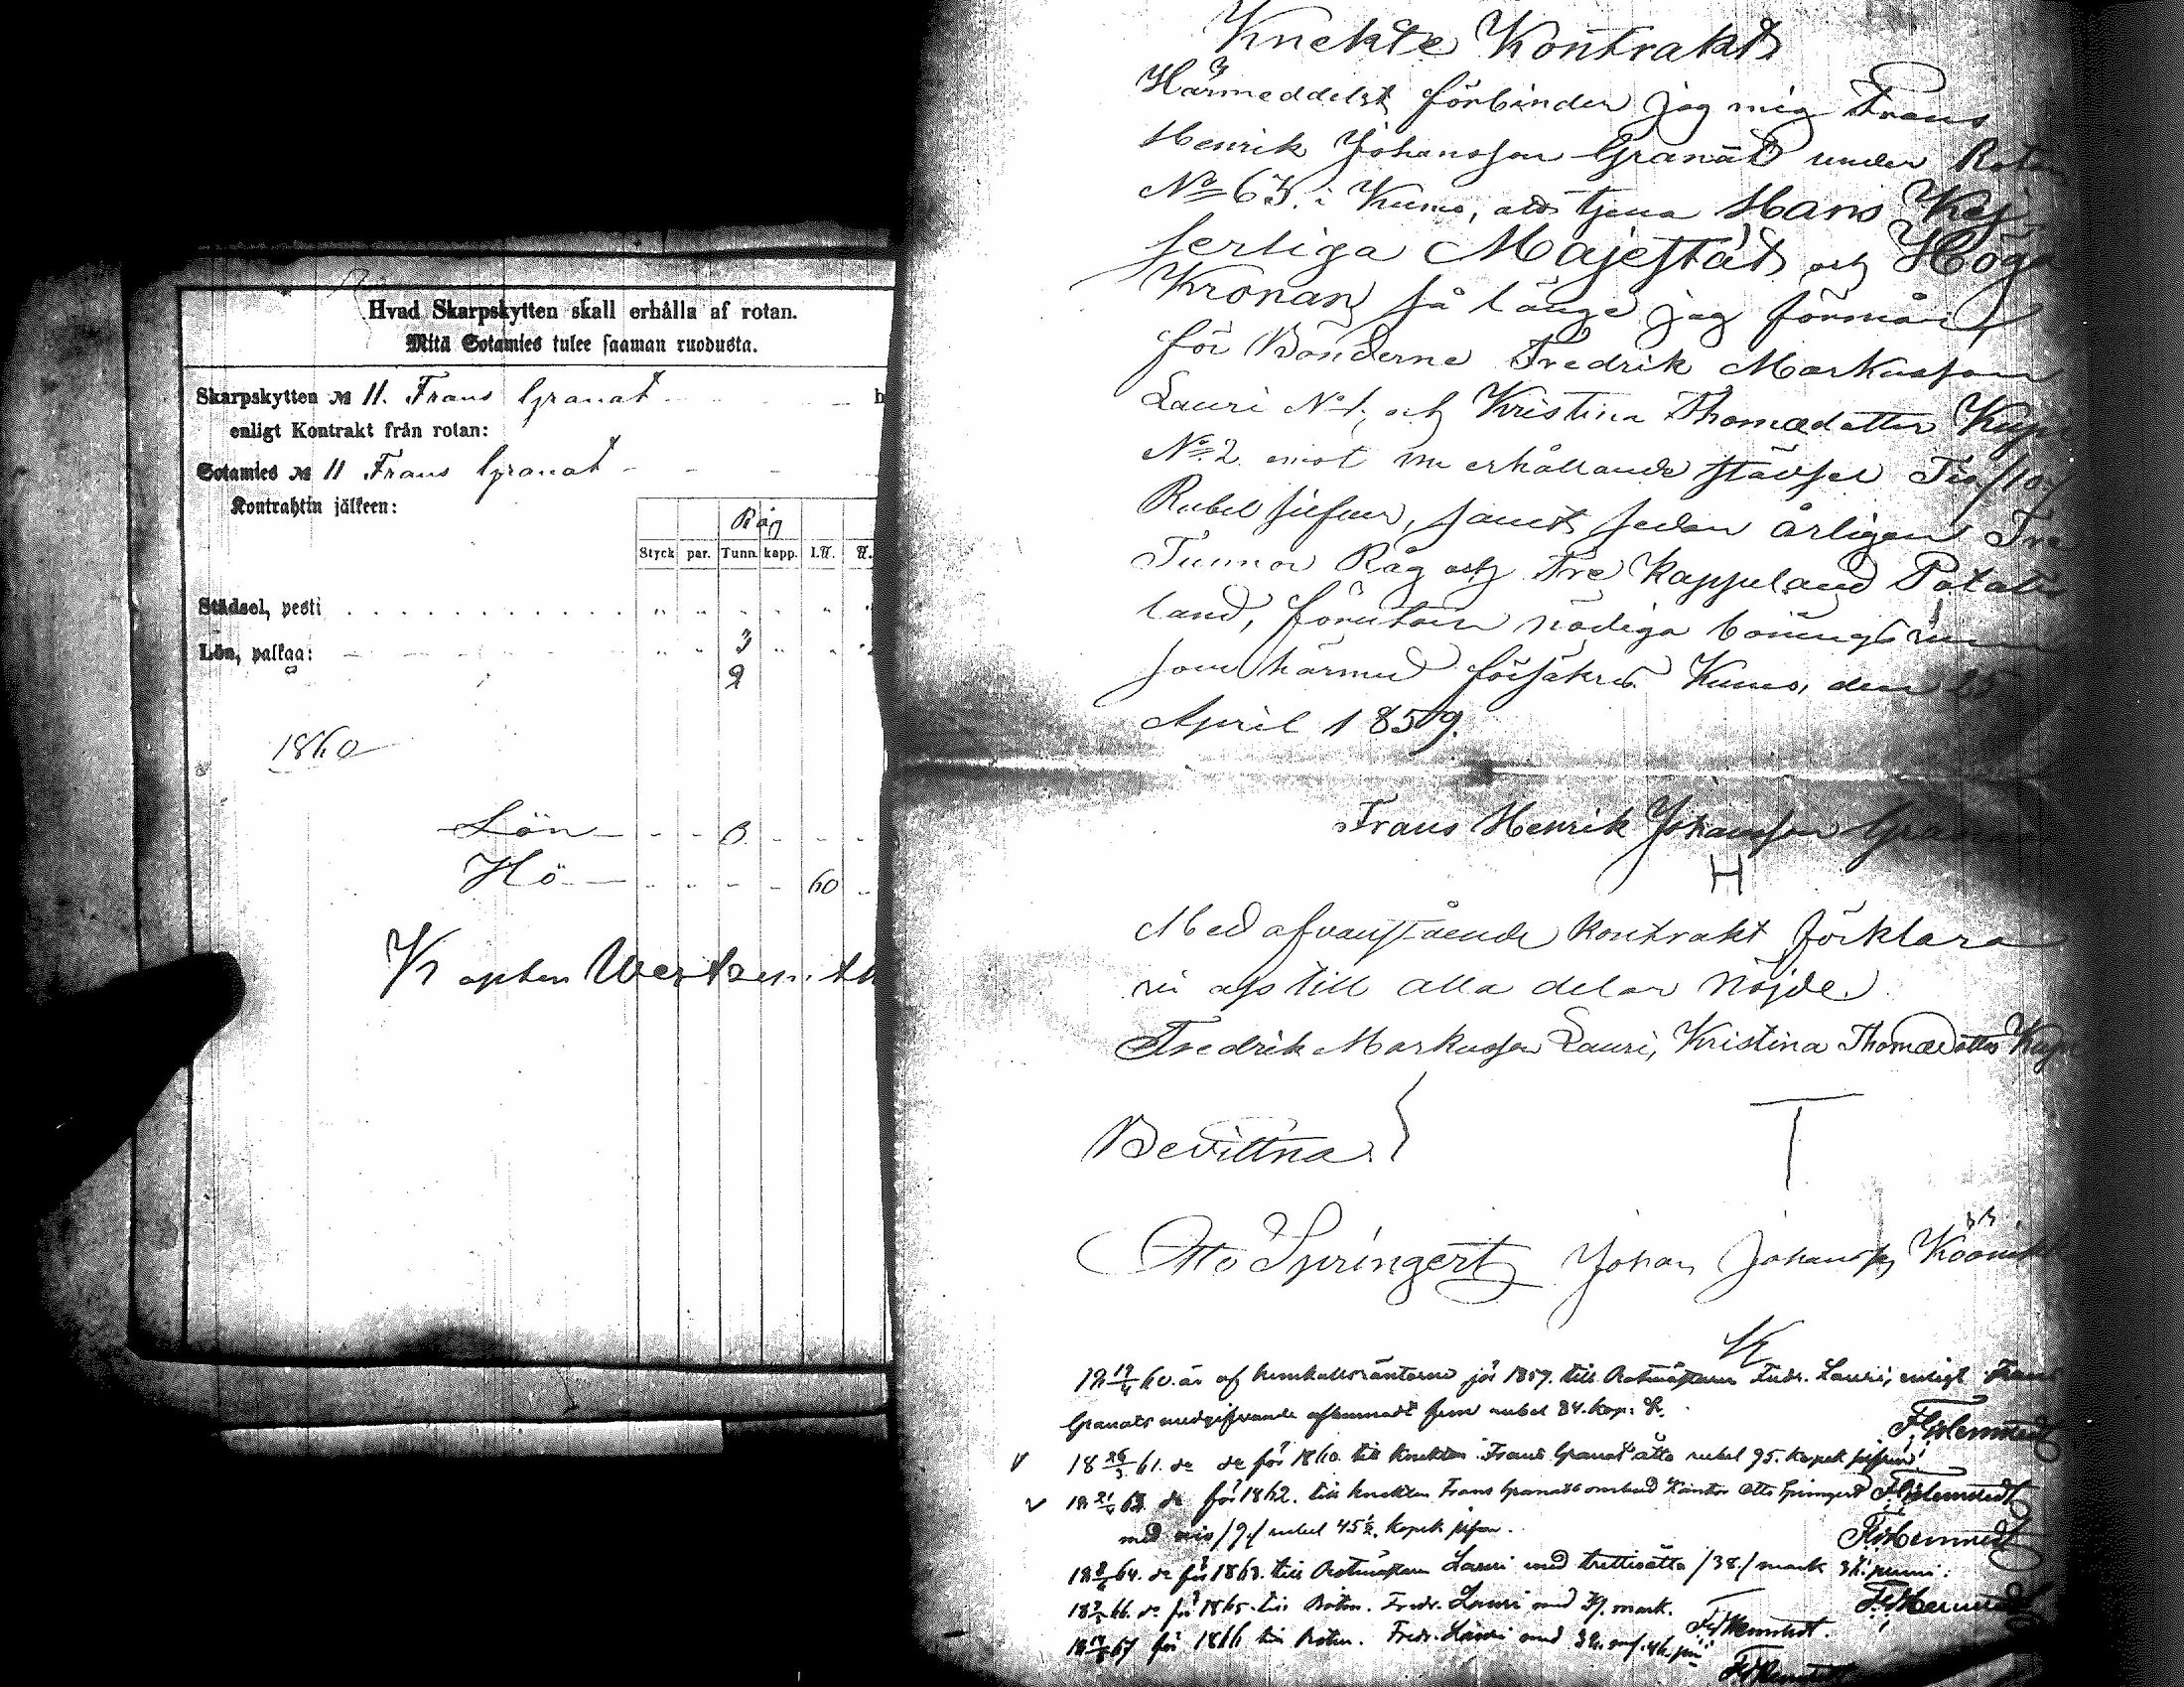 Hvad Skarpskytten skall erhålla af rotan.
Mitä Sotamies tulee saaman ruodusta.
Skarpskytten № 11. Frans Granat
enligt Kontrakt från rotan:
Sotamies № 11 Frans Granat
Kontrahtin jälkeen:
Råg
Styck par. Tunn. kapp. L℔. ℔.
Städsel, pesti
Lön, palkaa: 3
2
1860
Lön 3
Hö 60
Knekte Kontrakt
Härmeddelst förbinder jag mig Frans
Henrik Johansson Granat under Rotan
No 63. i Kumo, att tjena Hans Kej
serliga Majestät och Höga
Kronan så länge jag förmår
för Bönderne Fredrik Markusson
Lauri No 1, och Kristina Thomædotter
No 2 emot erhållande städsel Tio /10/
Rubel silfver, samt sedan årligen Tre
Tunnor Råg och tre kappeland Potates
land, förutom nödiga böningsrum
som härmed försäkras Kumo, den 25
April 1859.
Frans Henrik Johansson
H
Med ofvanstående kontrakt förklara
vi oss till alla delar nöjde.
Fredrik Markusson Lauri, Kristina Thomædotter
Bevittna
T
Otto Springert Johan Johansson
18 60. är af för 1859. till Rotmästaren Fredr. Lauri, enligt Frans
Granats medgifvande fem rubel 84. kop: Sr.
18 26/3 61. do do för 1860. till knekten Frans Granat åtta rubel 95. kopek silfver
18 21/4 63 do för 1862. till knekten Frans Granats ombud Kantor Otto Springert
med nio /9./ rubel 45½. kopek silfver.
18 64. do för 1863. till Rotmästaren Lauri med trettioåtta /38./ mark
18 66. do för 1865. till Rotm. Fredr. Lauri med mark.
18 67 för 1866 till Rotm. Fredr. Lauri med